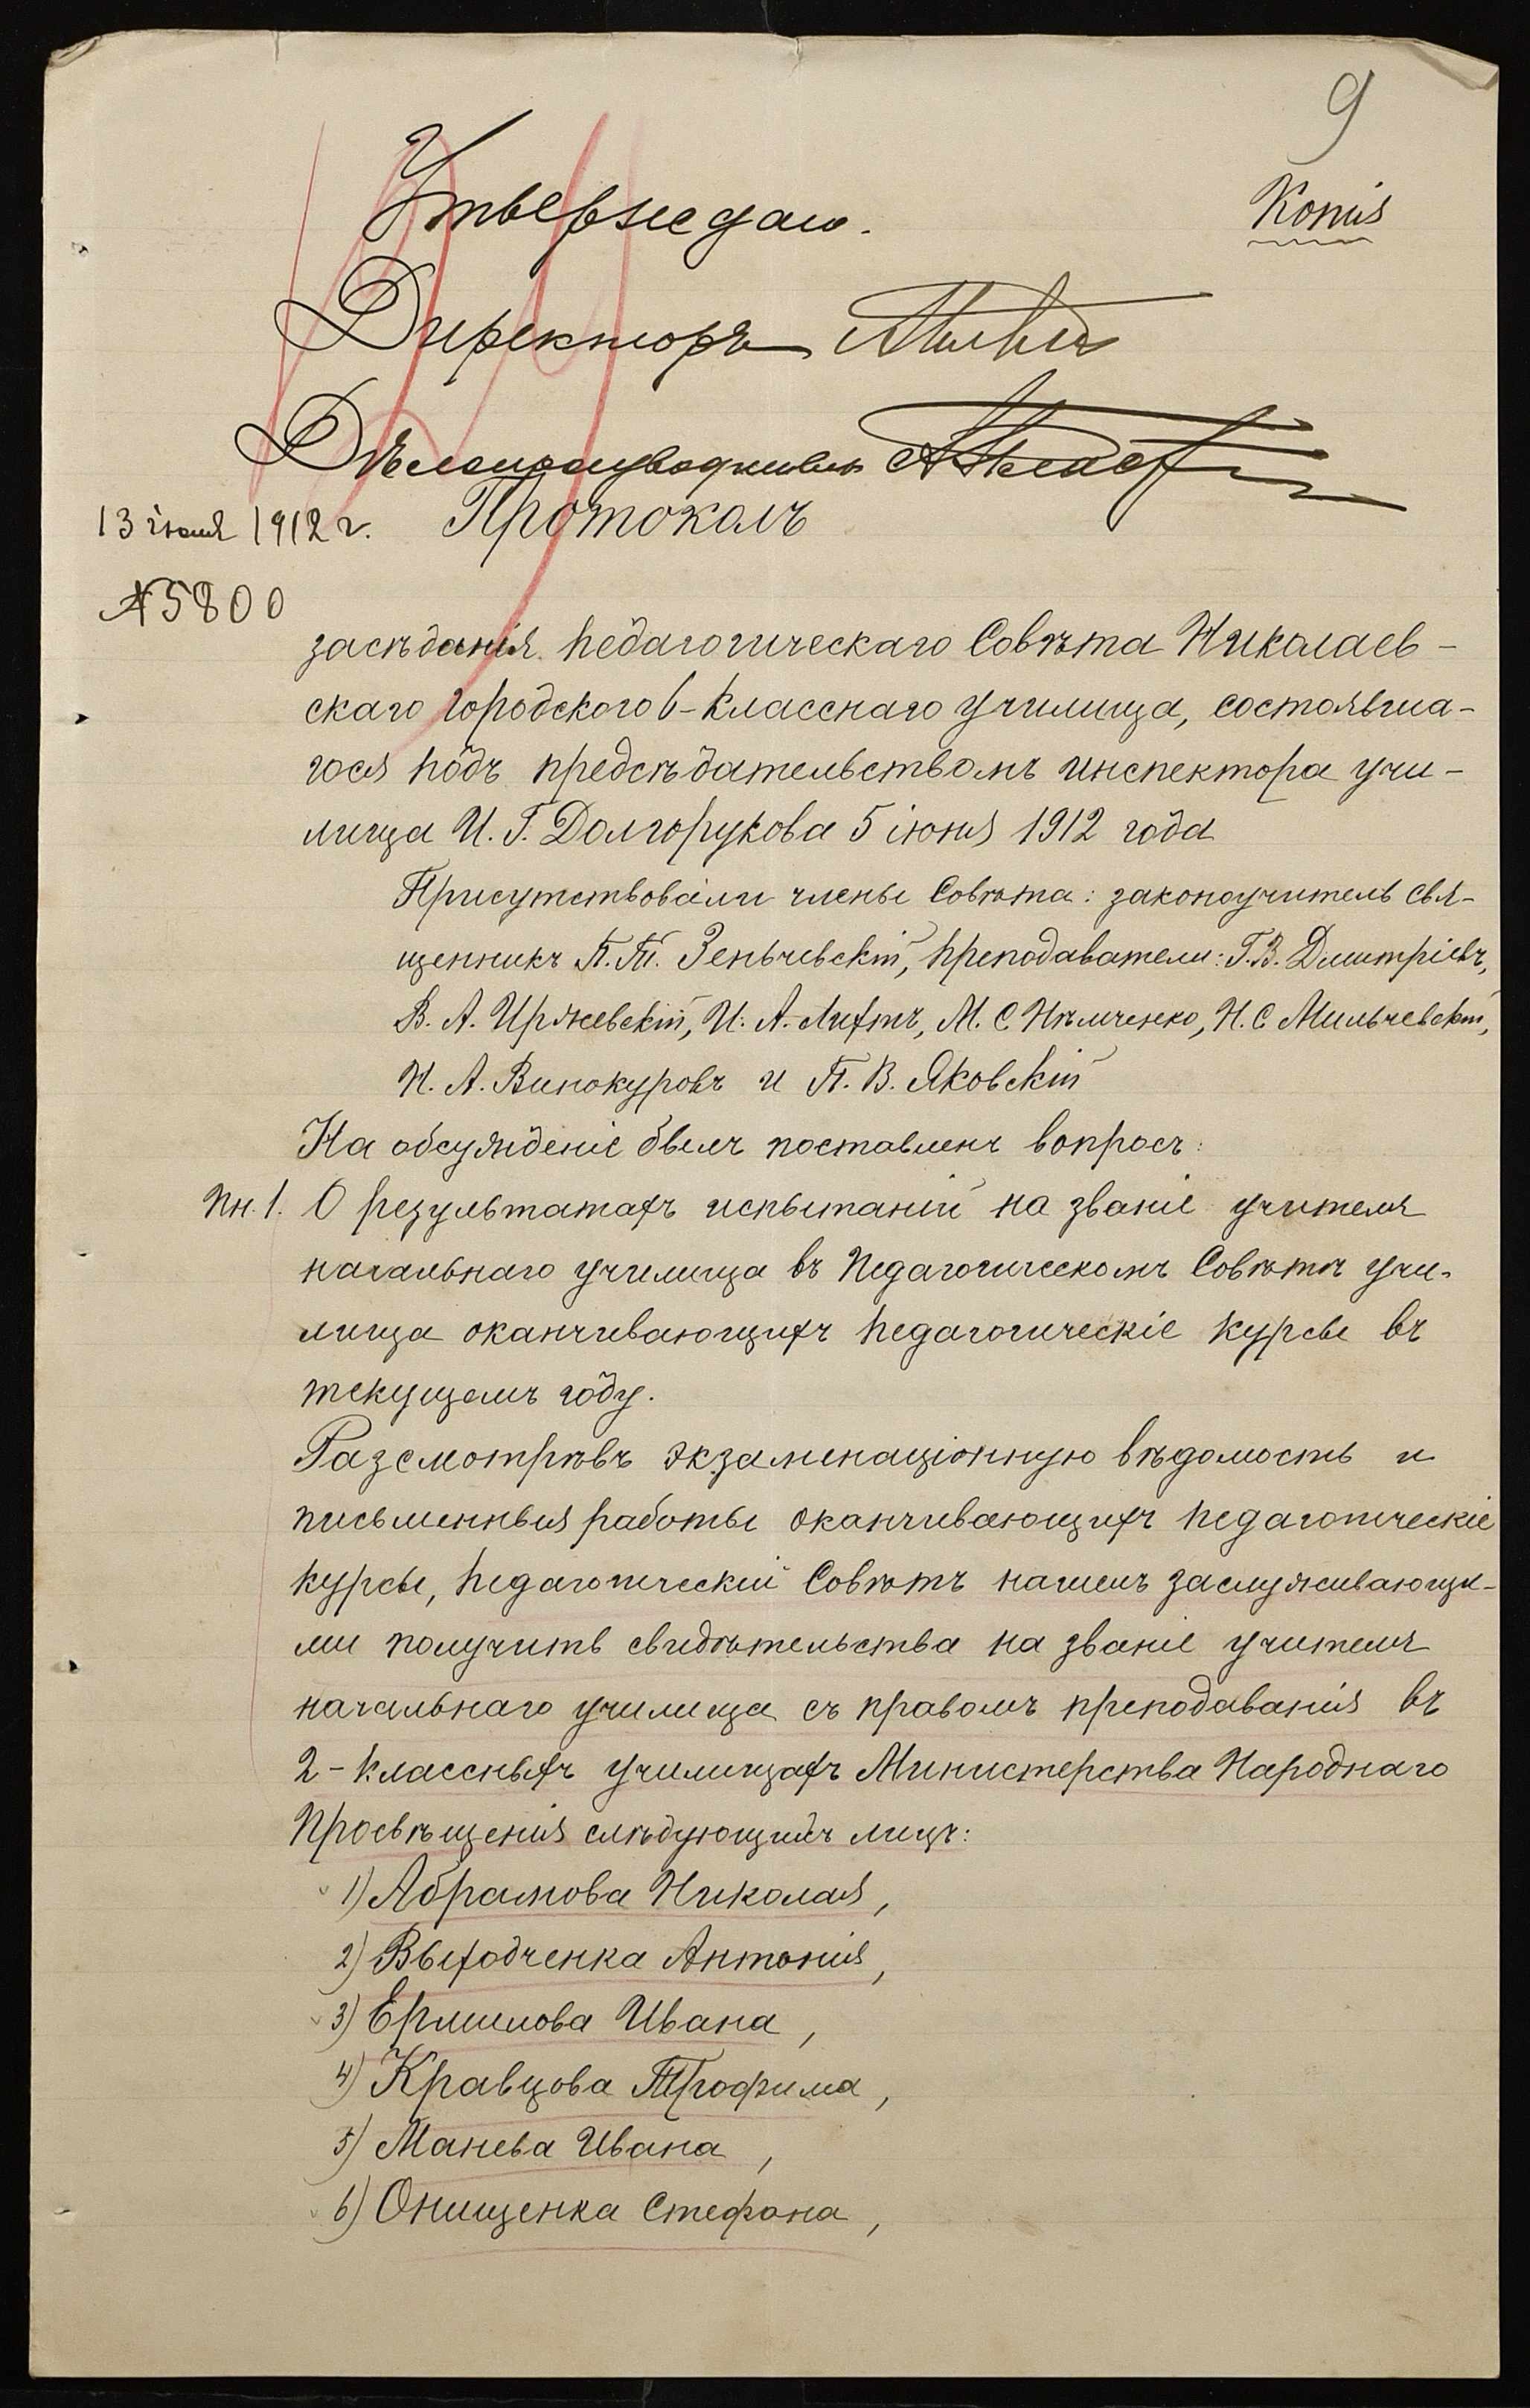 9
Копія
Утверждаю.
Директоръ
Дѣлопроизводитель
13 іюня 1912 г. Протоколъ
№ 5800
засѣданія педагогическаго Совѣта Николаев-
скаго городского 6-класснаго училища, состоявша-
гося подъ предсѣдательствомъ инспектора учи-
лища И. Г. Долгорукова 5 іюня 1912 года
Присутствовали члены Совѣта: законоучитель свя-
щенникъ П. Т. Зеньчевскій, преподаватели: Г. В. Димитріевъ,
В. А. Иржевскій, И. А. Лифтъ, М. С. Нѣмченко, Н. С. Мильчевскій,
Н. А. Винокуровъ и П. В. Яковскій
На обсужденіе былъ поставленъ вопросъ:
Пн. 1. О результатахъ испытаній на званіе учителя
начальнаго училища въ Педагогическомъ Совѣтѣ учи-
лища оканчивающихъ педагогическіе курсы въ
текущемъ году.
Разсмотрѣвъ экзаменаціонную вѣдомость и
письменныя работы оканчивающихъ педагогическіе
курсы, педагогическій Совѣтъ нашелъ заслуживающи-
ми получить свидѣтельства на званіе учителя
начальнаго училища съ правомъ преподаванія въ
2-классныхъ училищахъ Министерства Народнаго
Просвѣщенія слѣдующихъ лицъ:
1) Абрамова Николая,
2) Выходченка Антонія,
3) Ермилова Ивана,
4) Кравцова Трофима,
5) Манева Ивана,
6) Онищенка Стефана,